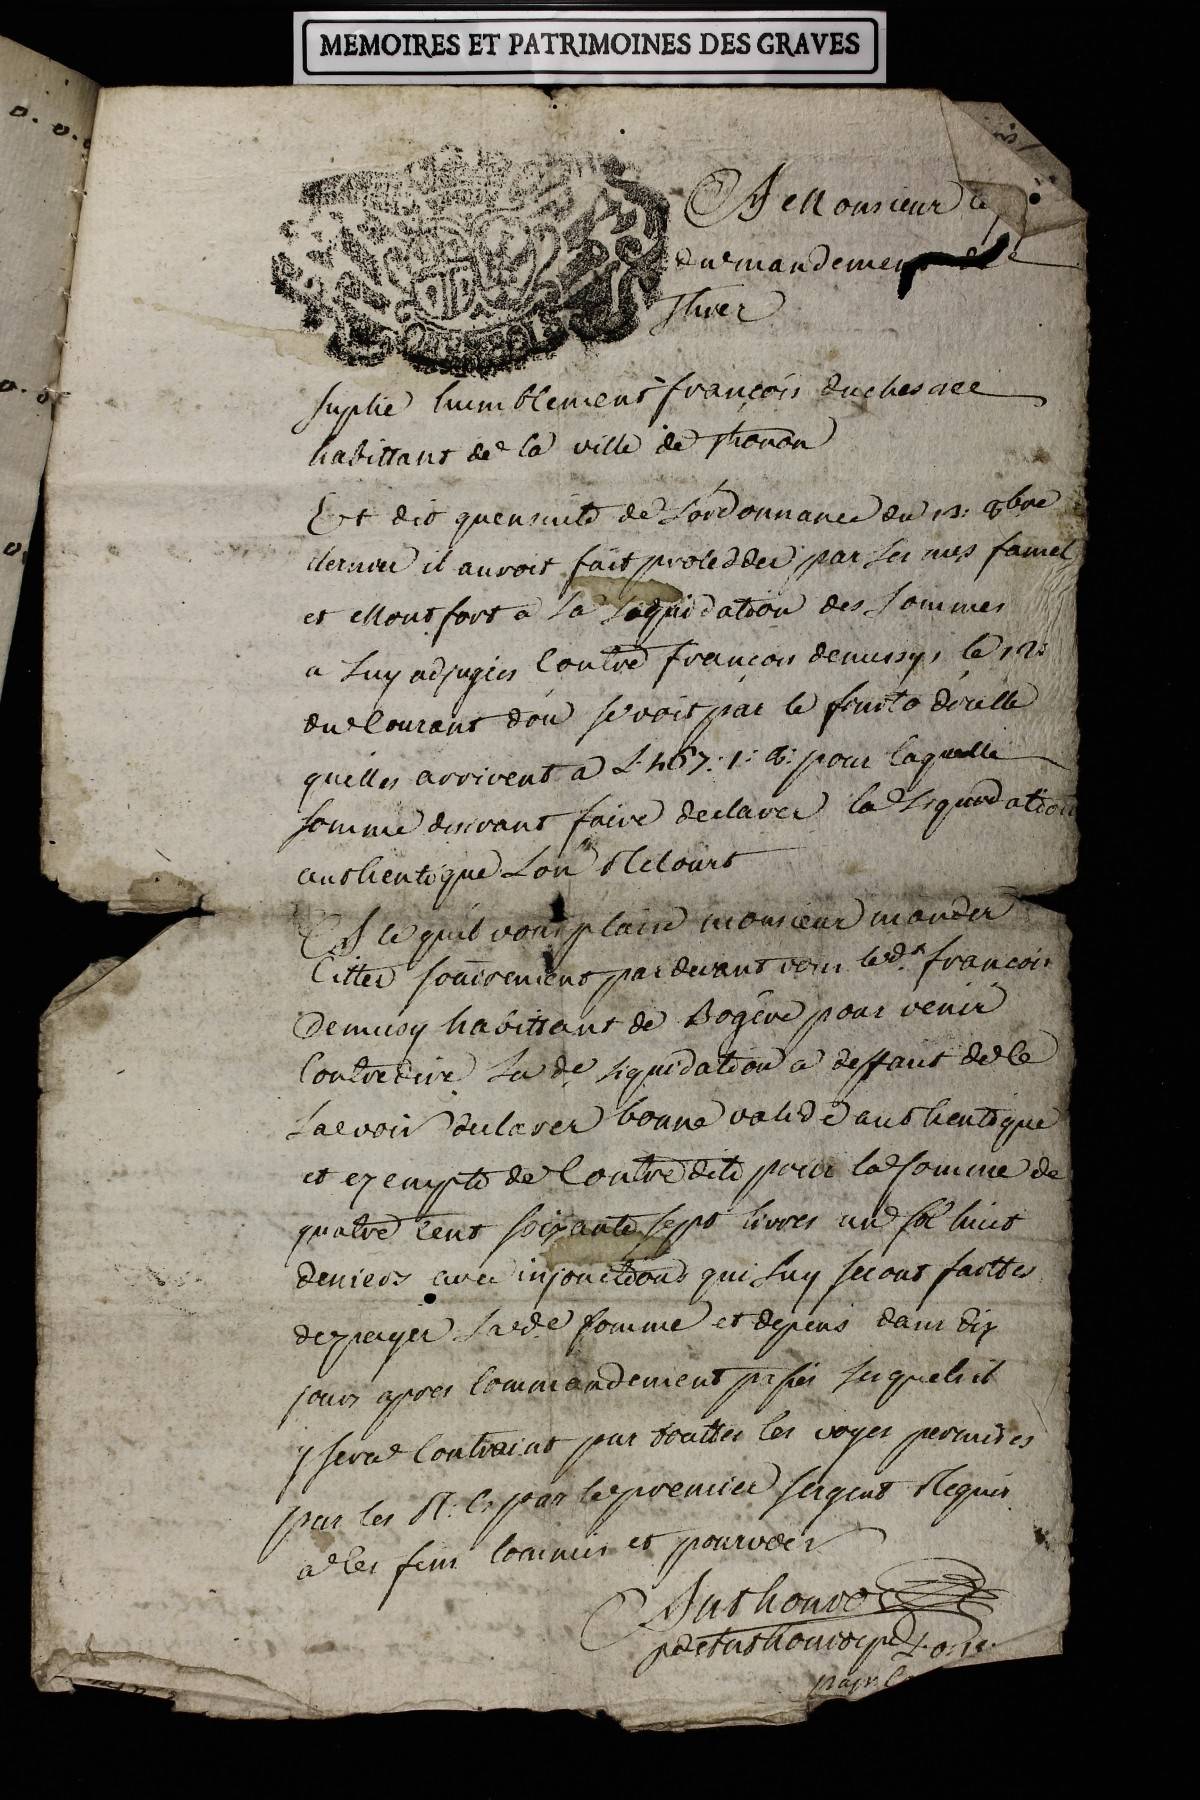 MEMOIRES ET PATRIMOINES DES GRAVES
A Monsieur le
du mandement de
Thiez
suplie humblement françois duchesnee
habittant de la ville de thonon
Et dit quensuite de Lordonnance du 13: 8bre
dernier il auroit fait proledder par les mes famel
et Montfort a la Liquidation des sommes
a Luy adjugées Contre françois demussy, le 12:
du Courant d'ou se voit par le d'icelle
quelles arrivent a L 467: 1: 8: pour laquelle
somme desirant faire declarer la Liquidation
authentique Lon Recourt
A ce quil vous plaise monsieur mander
Citter sommairement par devant vous led.t françois
Demussy habittant de Bogéve pour venir
Contredire La de. liquidation a deffaut de le
la voir declarer bonne valide authentique
et exempte de Contredite pour la somme de
quatre Cent soixante sept livres un sol huit
deniers avec injonctions qui luy seront faittes
de payer La de. somme et depens dans dix
jours apres Commandement passés lesquels il
y sera Contraint par touttes les voyes permises
par les R: C: par le premier sergent Requis
a Ces fins Commis et pourvoir
Anthonoz